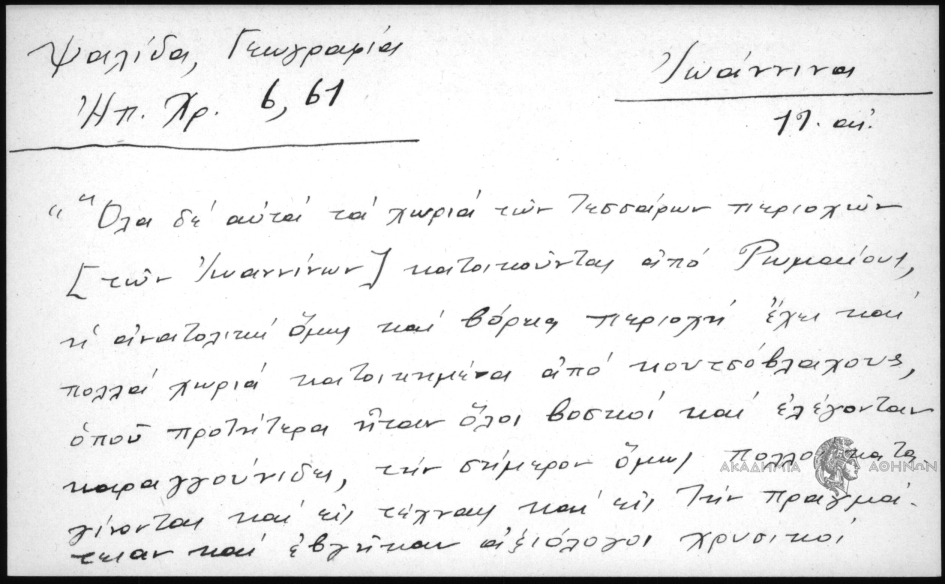 Ψαλίδα, Γεωγραφία
Ἠπ. Χρ. 6, 61
Ἰωάννινα
19. αἰ.
“Ὅλα δέ αὐτά τά χωριά τῶν τεσσάρων περιοχῶν
[τῶν Ἰωαννίνων] κατοικοῦνται ἀπό Ρωμαίους,
ἡ ἀνατολική ὅμως καί βόρεια περιοχή ἔχει καί
πολλά χωριά κατοικημένα ἀπό κουτσόβλαχους,
ὁποῦ προτήτερα ἦταν ὅλοι βοσκοί καί ἐλέγονταν
καραγγούνιδες, τήν σήμερον ὅμως πολλοί κατα
γίνονται καί εἰς τέχνας καί εἰς τήν πραγμά-
τειαν καί ἐβγῆκαν ἀξιόλογοι χρυσικοί
ΑΚΑΔΗΜΙΑ ΑΘΗΝΩΝ